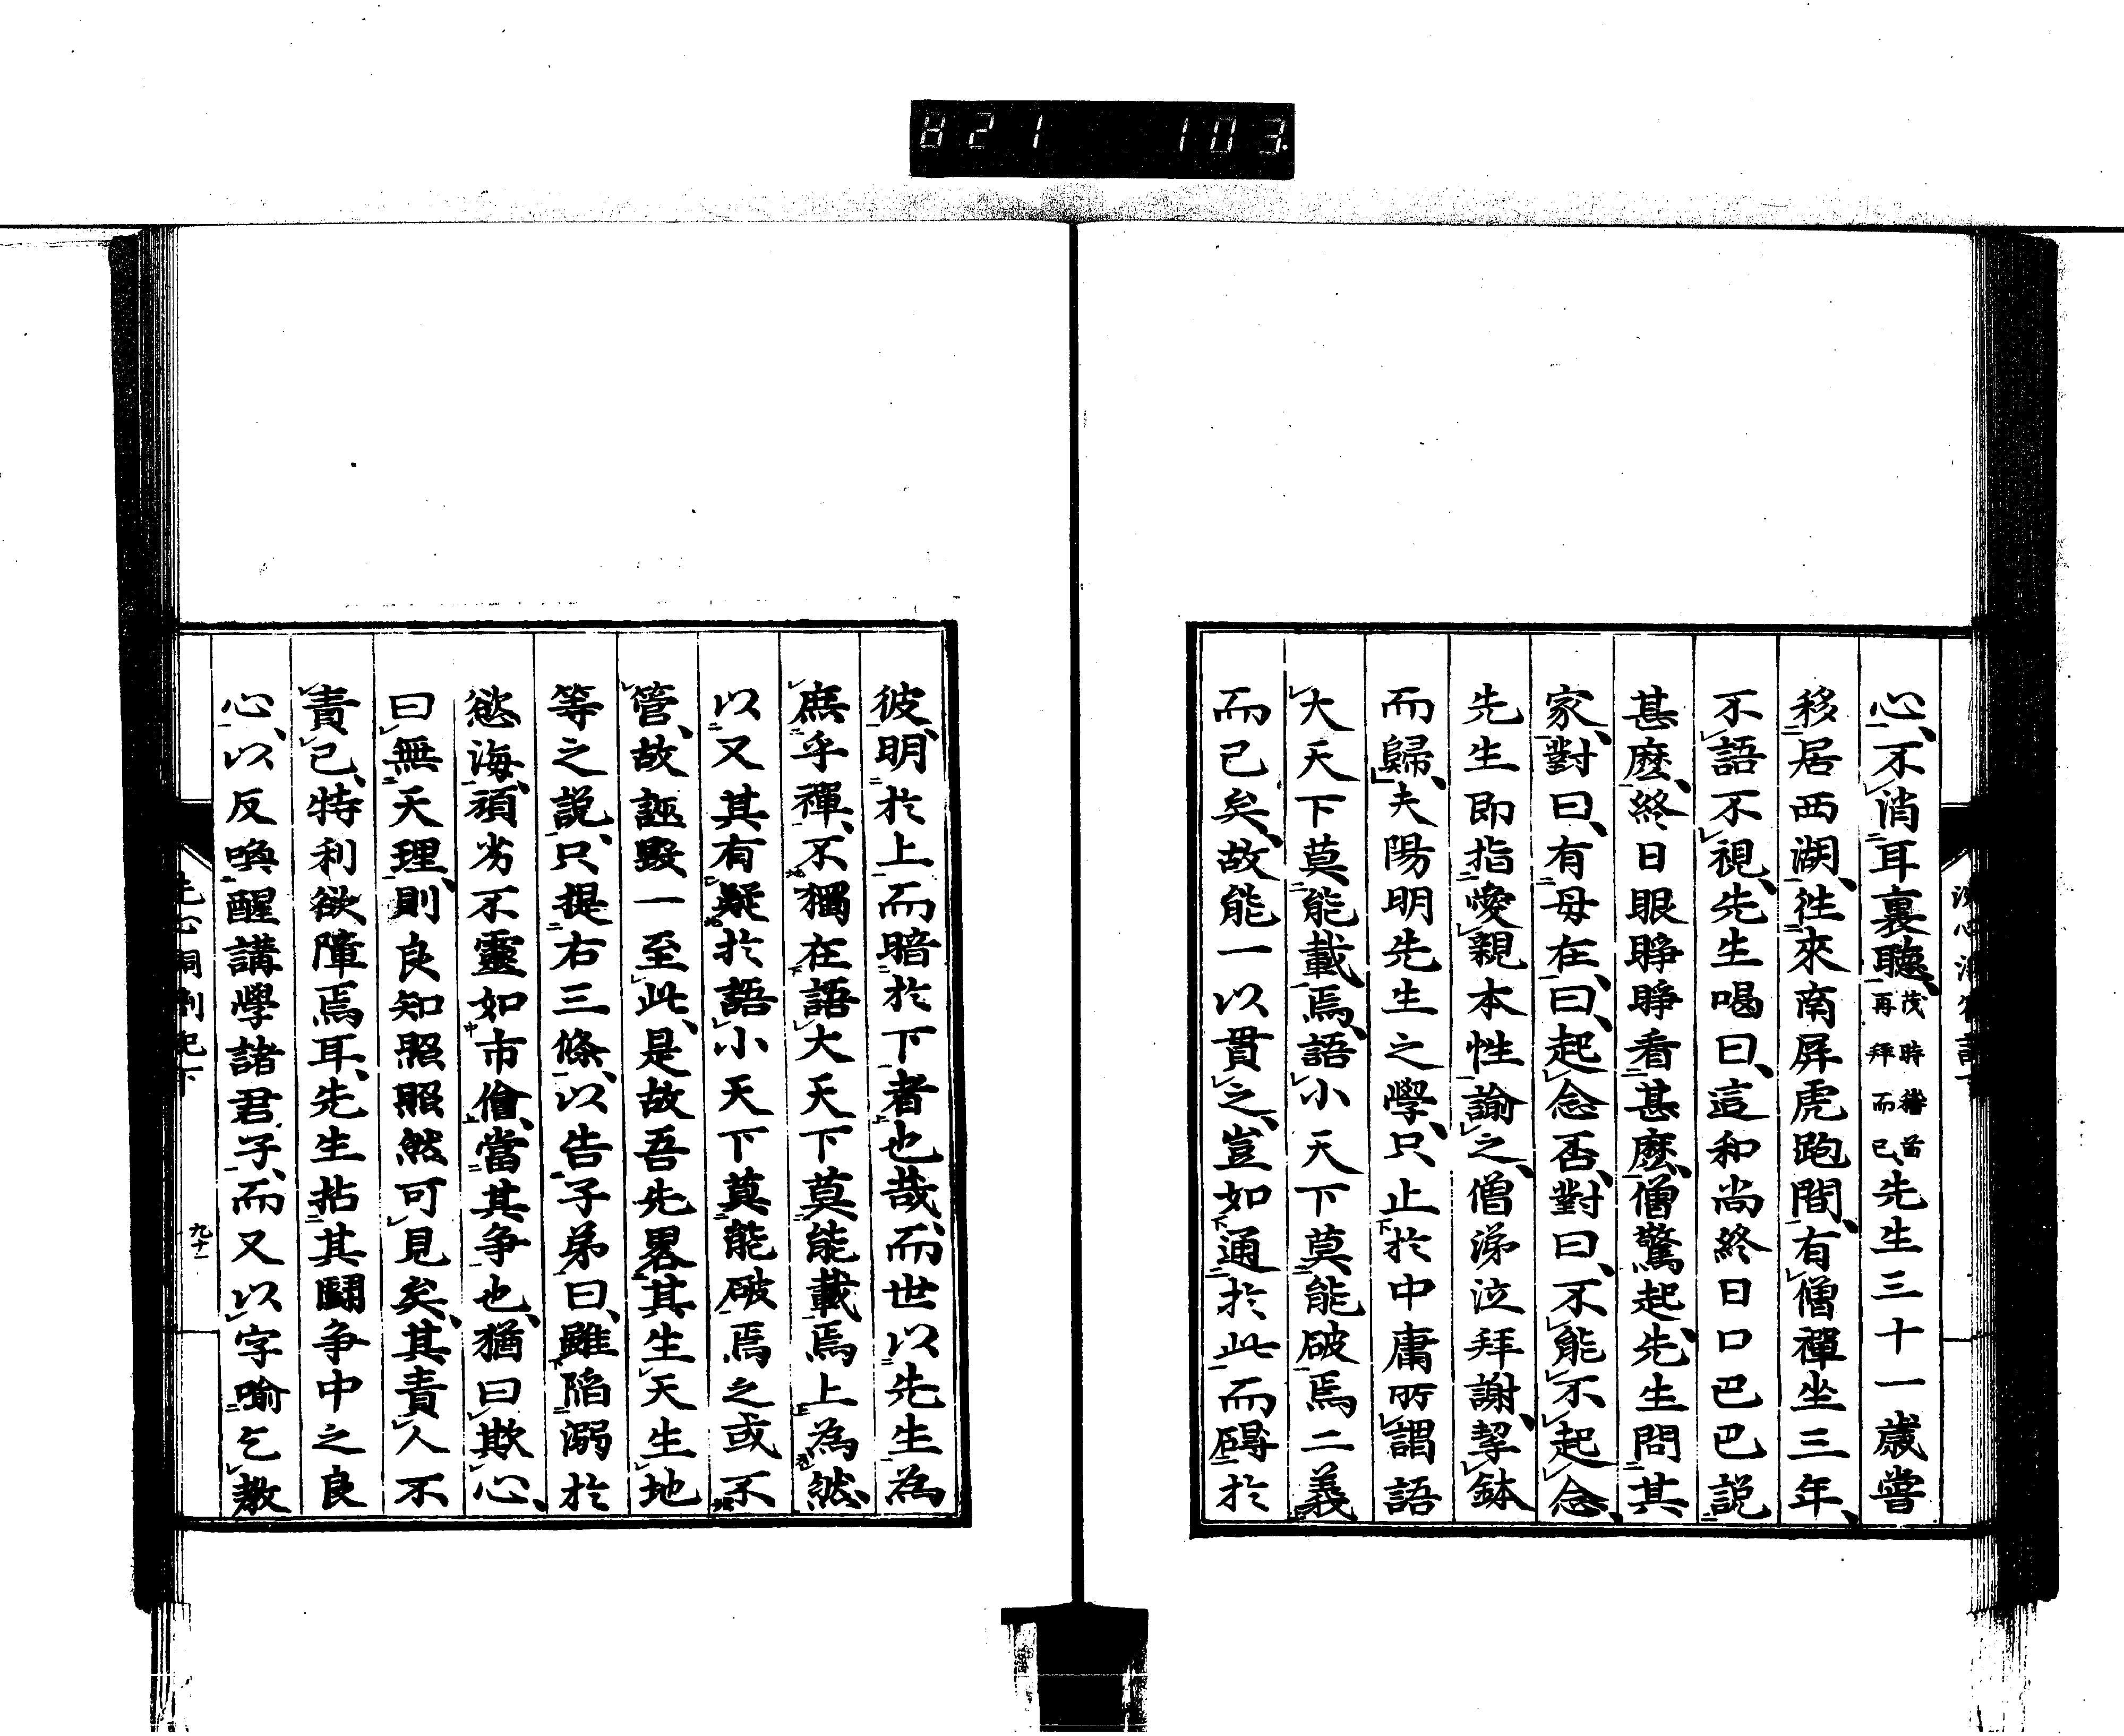 821 103
心、不消耳裏聽、茂時稽首再拜而已、先生三十一歲嘗
移居西湖、往來南屏虎跑間、有僧禪坐三年、
不語不視、先生喝曰、這和尚終日口巴巴説
甚麽、終日眼睜睜看甚麽、僧驚起、先生問其
家、對曰、有母在、曰、起念否、對曰、不能不起念、
先生即指愛親本性諭之、僧涕泣拜謝、挈鉢
而歸、夫陽明先生之學、只止於中庸所謂語
大天下莫能載焉、語小天下莫能破焉二義
而已矣、故能一以貫之、豈如通於此而礙於
彼、明於上而暗於下者也哉、而世以先生為
廡乎禪、不獨在語大天下莫能載焉上為然、
以又其有疑於語小天下莫能破焉之或不
管、故誣毀一至此、是故吾先畧其生天生地
等之説、只提右三條、以告子弟曰、雖陷溺於
慾海、頑劣不靈如市儈、當其爭也、猶曰欺心、
曰無天理、則良知照照然可見矣、其責人不
責己、特利欲障焉耳、先生拈其鬪爭中之良
心、以反喚醒講學諸君子、而又以字喻乞教
九十一